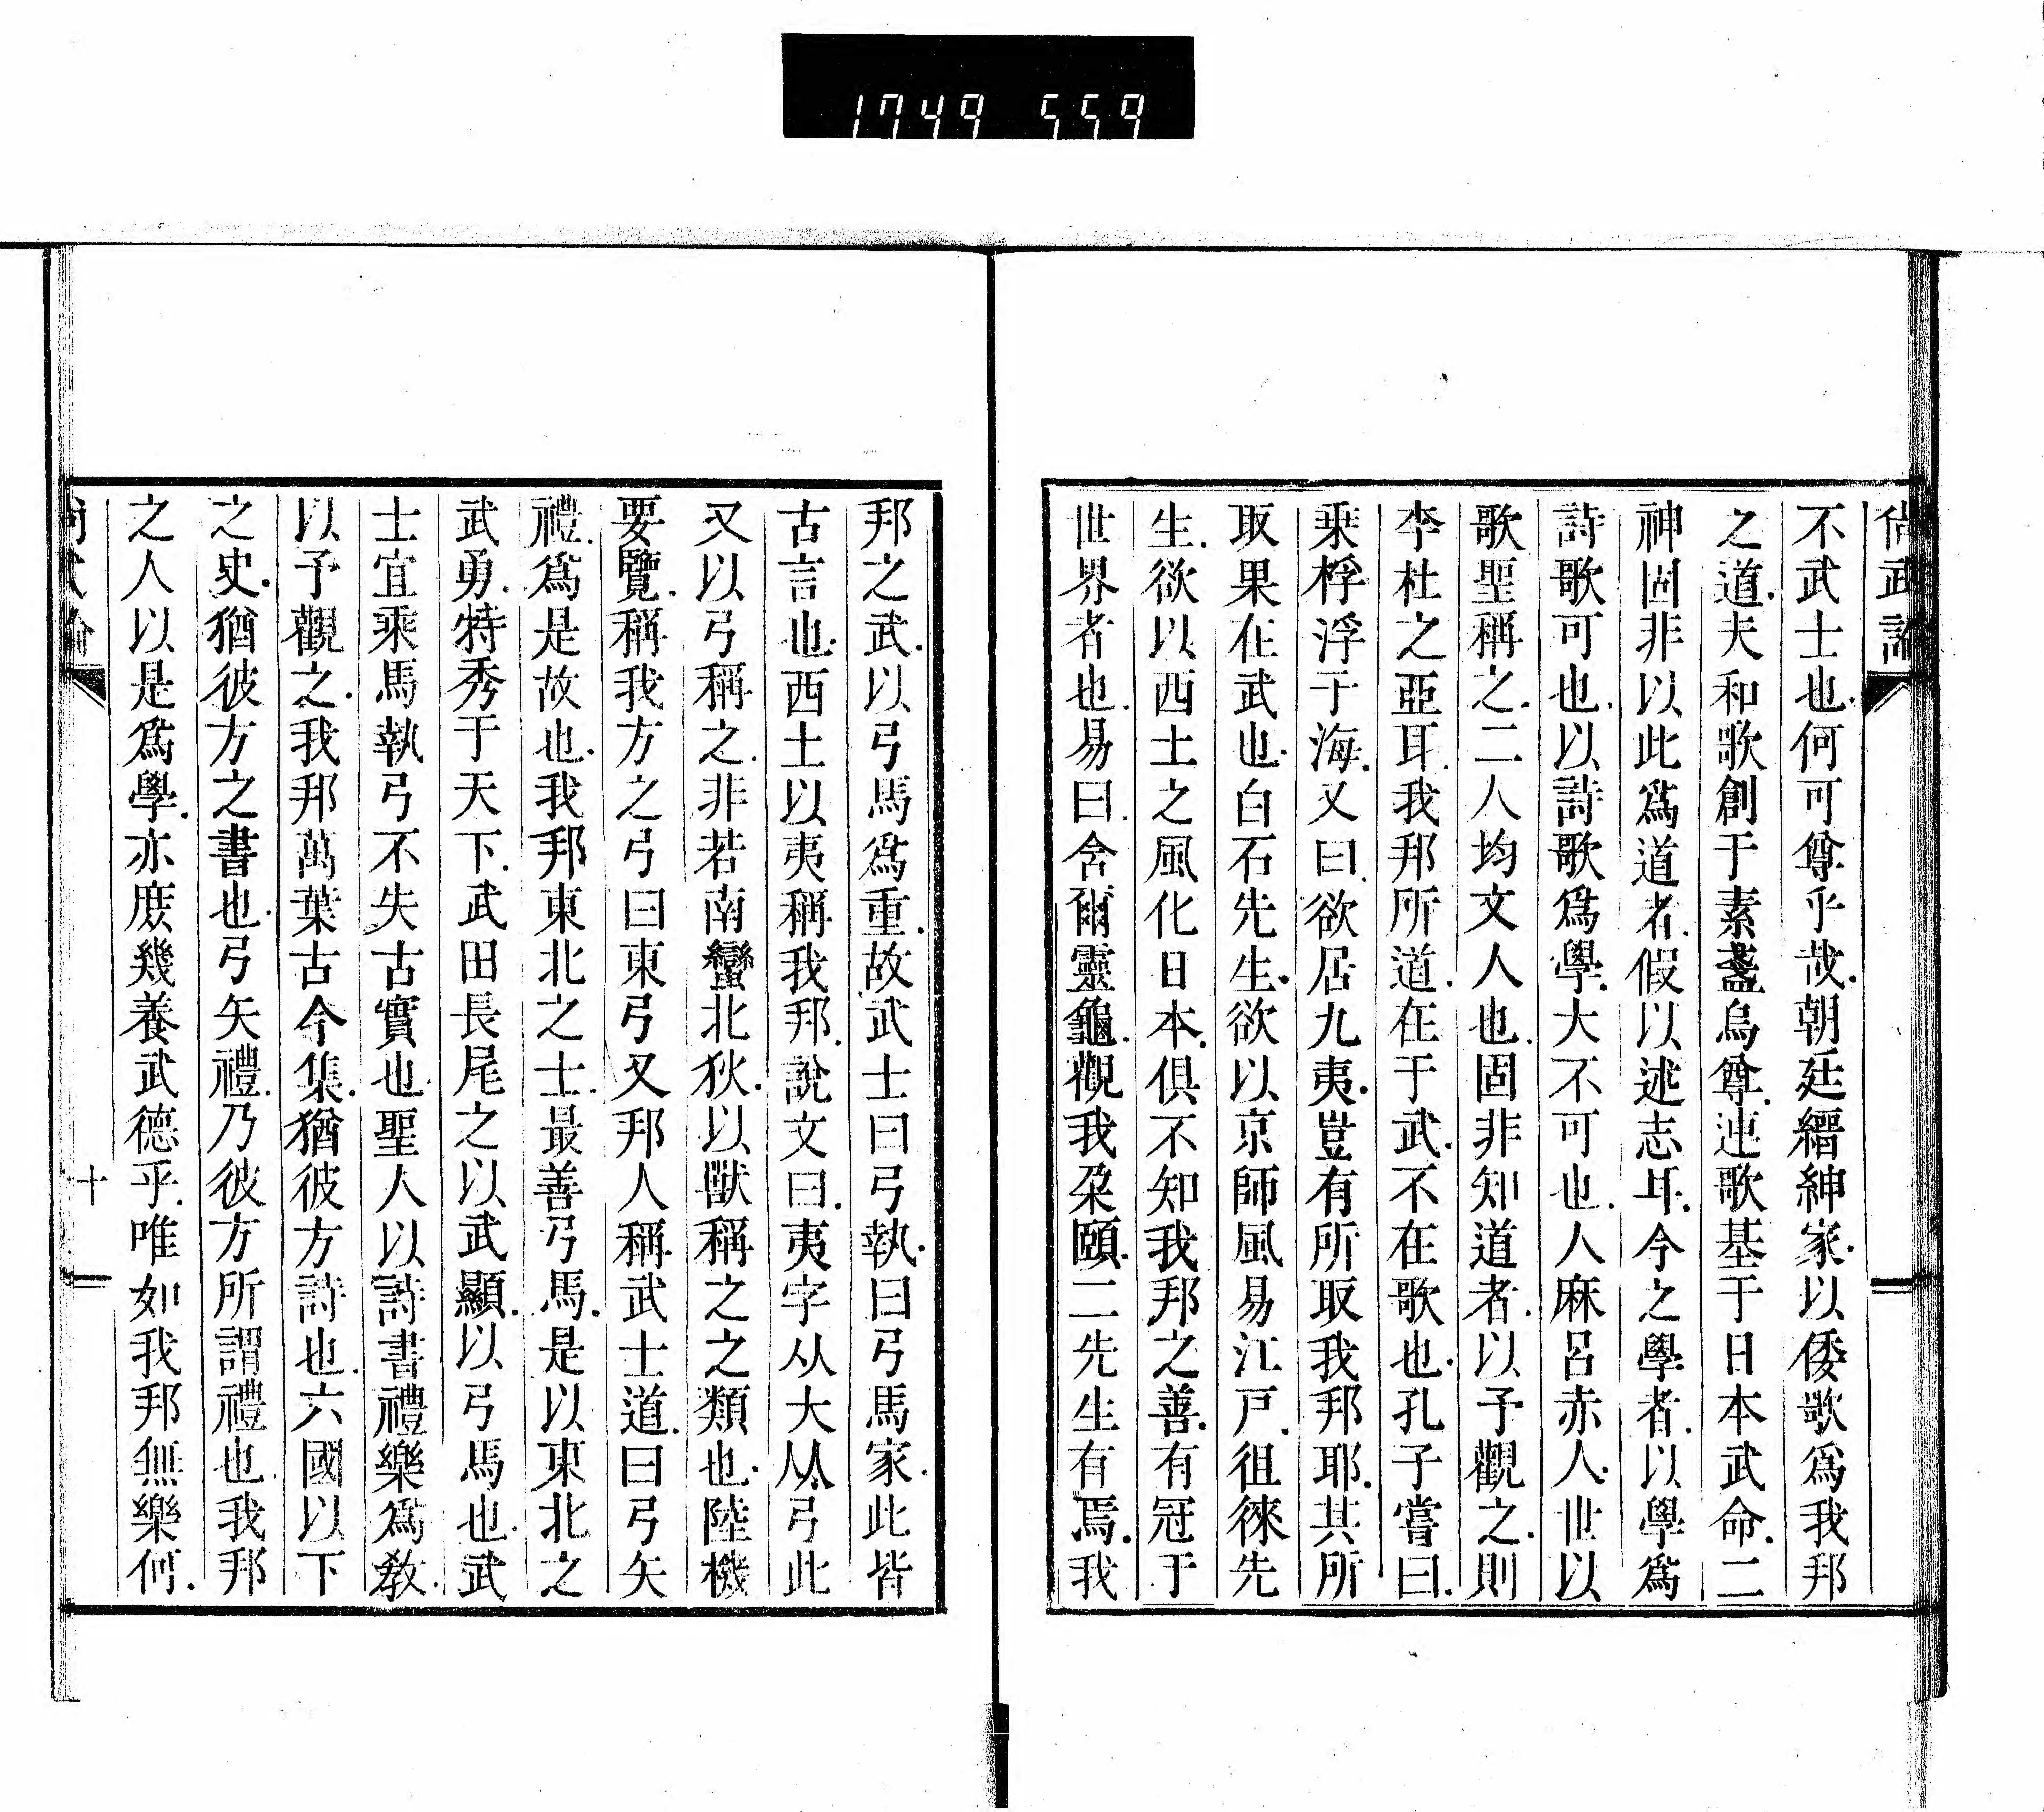 1749 559
尚武論
不武士也何可尊乎哉.朝廷縉紳家.以倭歌爲我邦
之道.夫和歌創于素盞烏尊.連歌基于日本武命.二
神固非以此爲道者.假以述志耳.今之學者.以學爲
詩歌可也.以詩歌爲學.大不可也.人麻呂赤人.世以
歌聖稱之.二人均文人也.固非知道者.以予觀之.則
李杜之亞耳.我邦所道.在于武.不在歌也.孔子嘗曰.
乘桴浮于海.又曰.欲居九夷.豈有所取我邦耶.其所
取果在武也.白石先生.欲以京師風易江戸.徂徠先
生.欲以西土之風化日本.俱不知我邦之善.有冠于
世界者也.易曰.舍爾靈龜.觀我朶頤.二先生有焉.我
邦之武.以弓馬爲重.故武士曰弓執.曰弓馬家.此皆
古言也.西土以夷稱我邦.說文曰.夷字从大从弓此
又以弓稱之.非若南蠻北狄.以獸稱之之類也.陸機
要覽.稱我方之弓曰東弓又邦人稱武士道.曰弓矢
禮.爲是故也.我邦東北之士.最善弓馬.是以東北之
武勇.特秀于天下.武田長尾之以武顯.以弓馬也.武
士宜乘馬執弓不失古實也.聖人以詩書禮樂爲教.
以予觀之.我邦萬葉古今集.猶彼方詩也.六國以下
之史.猶彼方之書也.弓矢禮.乃彼方所謂禮也.我邦
之人以是爲學.亦庶幾養武德乎.唯如我邦無樂何.
尚武論
十